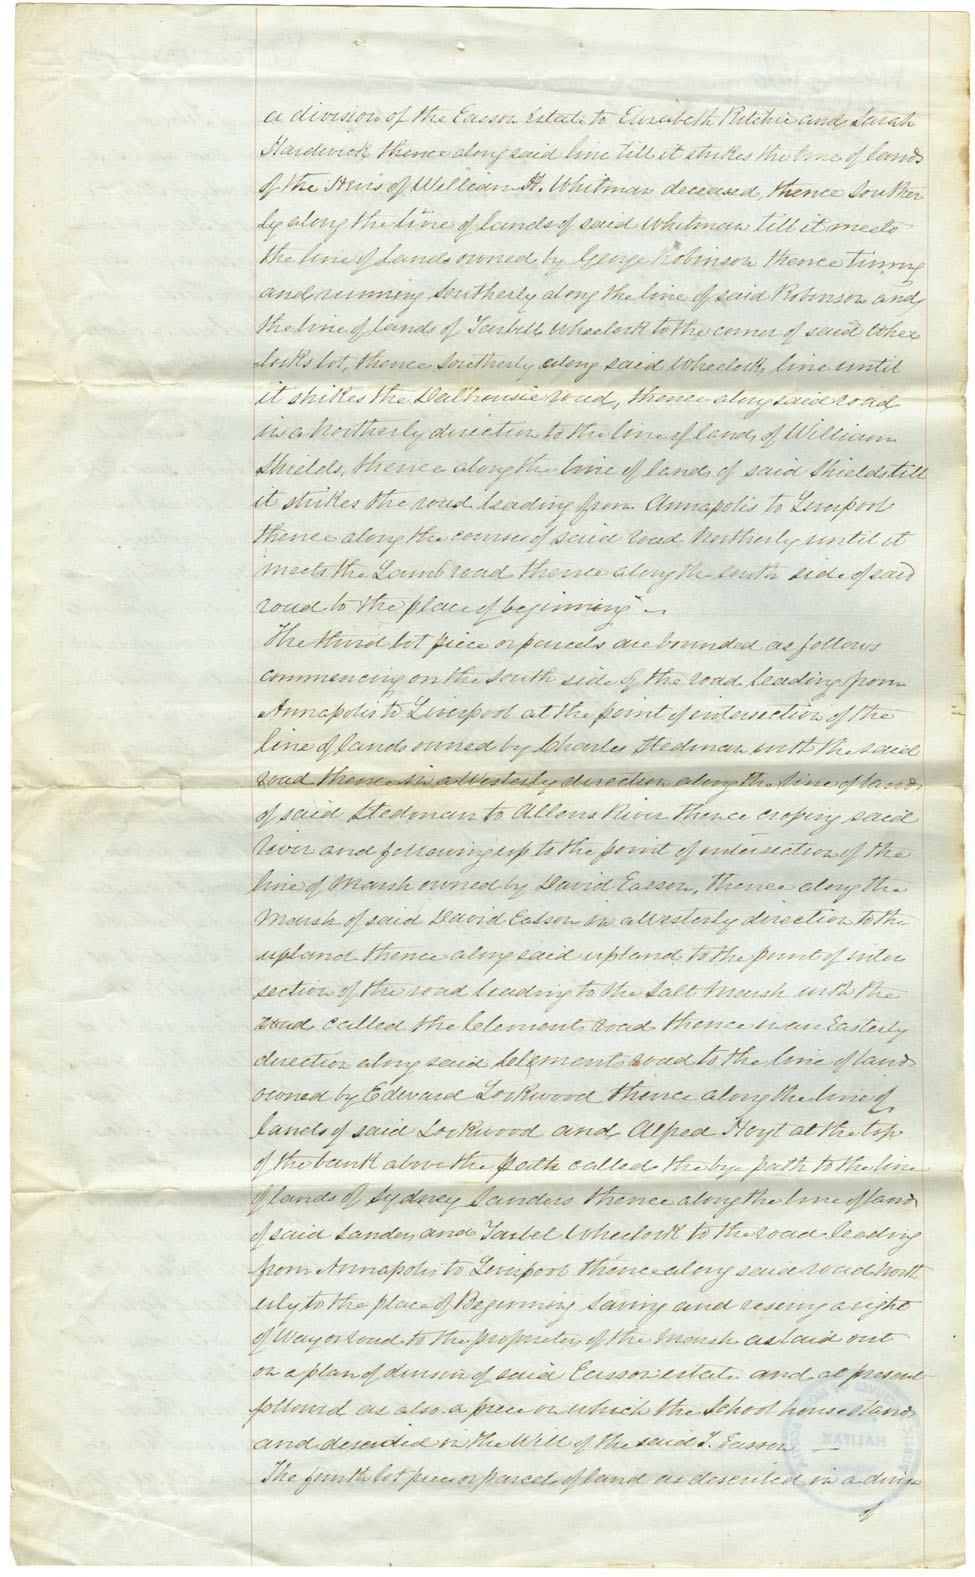 a division of the Easson Estate to Elizabeth Ritchie and Sarah
Hardwick thence along said line till it strikes the line of lands
of the Heirs of William H. Whitman deceased, thence Souther
ly along the line of lands of said Whitman till it meets
the line of lands owned by George Robinson thence turning
and running Southerly along the line of said Robinson and
the line of lands of Tarbell Wheelock to the corner of said Whee
locks lot, thence Southerly along said Wheelocks line until
it strikes the Dalhousie road, thence along said road
in a Northerly direction to the line of lands of William
Shields, thence along the line of lands of said Shields till
it strikes the road leading from Annapolis to Liverpool
thence along the course of said road Northerly until it
meets the Lamb road thence along the south side of said
road to the place of beginning —
The third lot piece or parcels are bounded as follows
commencing on the South side of the road leading from
Annapolis to Liverpool at the point of intersection of the
line of lands owned by Charles Stedman with the said
road thence in a Westerly direction along the line of lands
of said Stedman to Allens River thence croping said
River and following up to the point of intersection of the
line of Marsh owned by David Easson, thence along the
Marsh of said David Easson in a Westerly direction to the
upland thence along said upland to the point of inter
section of the road leading to the Salt Marsh with the
road called the Clements road thence in an Easterly
direction along said Clements road to the line of land
owned by Edward Lockwood thence along the line of
lands of said Lockwood and Alfred Hoyt at the top
of the bank above the path called the bye path to the line
of lands of Sydney Sanders thence along the line of land
of said Sanders and Tarbel Wheelock to the road leading
from Annapolis to Liverpool thence along said road North
erly to the place of Beginning Saving and reserving a right
of way or road to the proprietors of the Marsh as laid out
on a plan of division of said Easson estate and at present
followed as also a piece on which the School house stands
and described in the Will of the said T. Easson —
The fourth lot piece or parcel of land as described in a division
of
HALIFAX